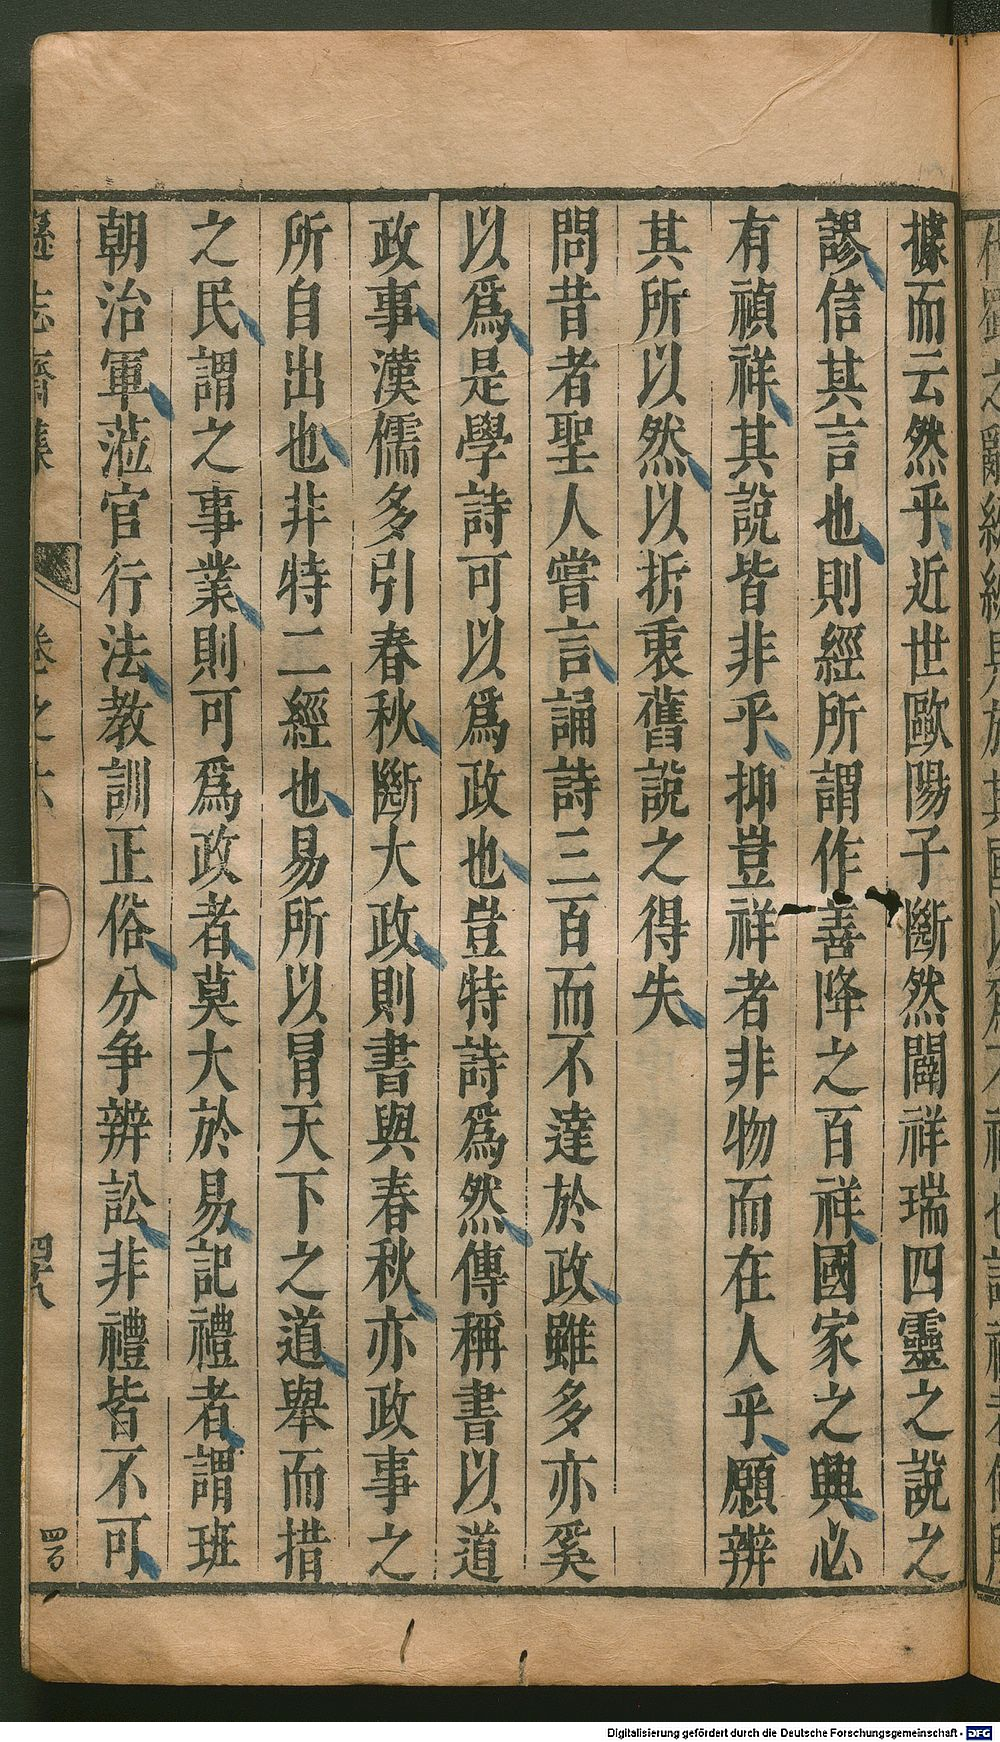 據而云然乎近世歐陽子斷然闢祥瑞四靈之說之
謬信其言也則經所謂作善降之百祥國家之興必
有禎祥其說皆非乎抑豈祥者非物而在人乎願辨
其所以然以折衷舊說之得失
問昔者聖人嘗言誦詩三百而不達於政雖多亦奚
以爲是學詩可以爲政也豈特詩爲然傳稱書以道
政事漢儒多引春秋斷大政則書與春秋亦政事之
所自出也非特二經也易所以冒天下之道舉而措
之民謂之事業則可爲政者莫大於易記禮者謂班
朝治軍蒞官行法教訓正俗分争辨訟非禮皆不可
遜志齋集 卷之六 四十八
四百
Digitalisierung gefördert durch die Deutsche Forschungsgemeinschaft - DFG